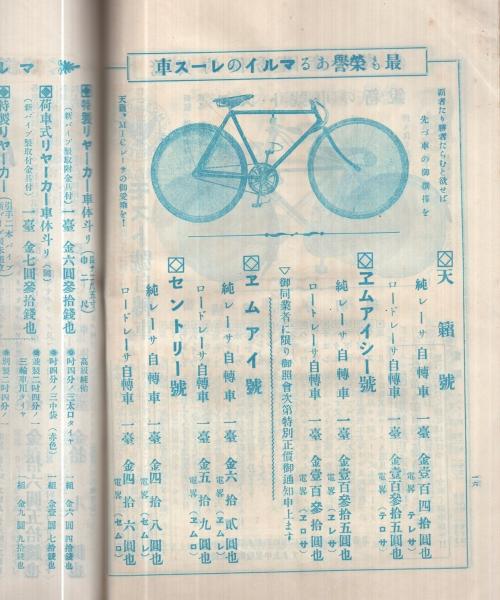 最も榮譽あるマルイのレース車
覇者たり勝者たらむと欲せば
先づ車の御撰擇を
天籟、MICレーサの御愛乘を!
◇天籟號
純レーサ自轉車 一臺 金壹百四拾圓也
電畧(テレサ)
ロードレーサ自轉車 一臺 金壹百參拾五圓也
電畧(テロサ)
◇ヱムアイシー號
純レーサ自轉車 一臺 金壹百參拾五圓也
電畧(ヱレサ)
ロートレーサ自轉車 一臺 金壹百參拾圓也
電畧(ヱロサ)
▽御同業者に限り御照會次第特別正價御通知申上ます
◇ヱムアイ號
純レーサ自轉車 一臺 金六拾貳圓也
電畧(ヱムレ)
ロードレーサ自轉車 一臺 金五拾九圓也
電畧(ヱムロ)
◇セントリー號
純レーサ自轉車 一臺 金四拾八圓也
電畧(セムレ)
ロードレーサ自轉車 一臺 金四拾六圓也
電畧(セムロ)
一六
マル
◇特製リヤーカー車体斗リ
(新パイプ製取附金具付) 一臺 金六圓參拾錢也
◇荷車式リヤーカー車体斗リ(同)
(新パイプ製取付金具付) 一臺 金七圓參拾錢也
◇特製リヤーカー
高級純帕
吋四分ノ三太口タイヤ 一組 金六圓四拾錢也
吋四分ノ三中袋(赤色) 一組 金壹圓七拾錢也
並製二吋四分ノ一
三輪車用タイヤ 一組 金九圓九拾錢也
別製二吋四分ノ